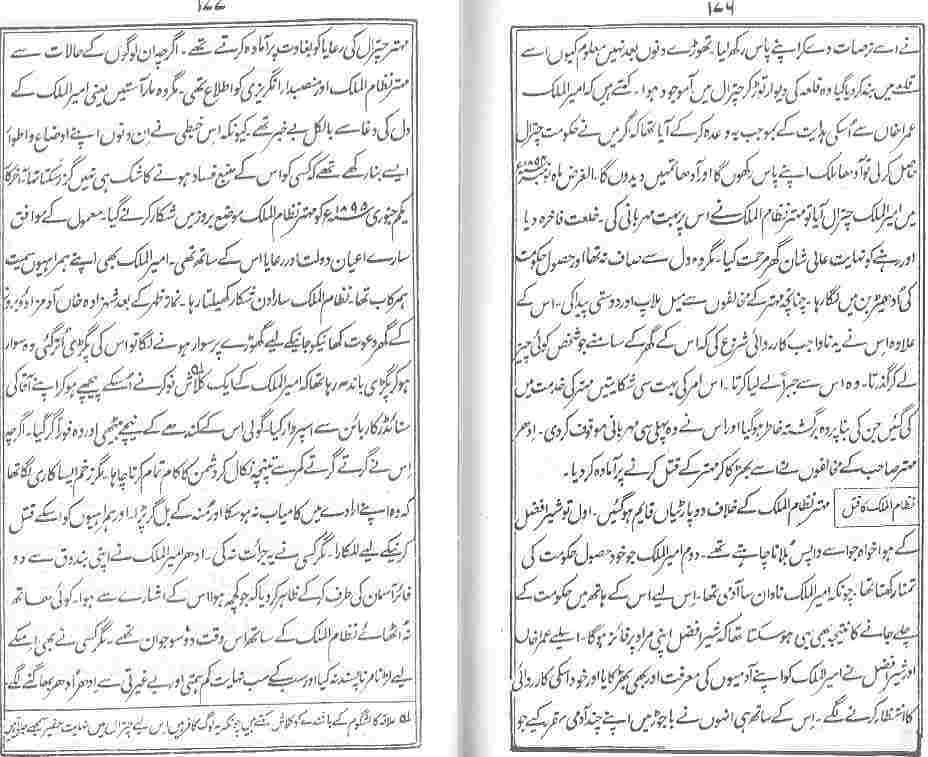 ۱۷۶
نے اسے ترصات دے کر اپنے پاس رکھ لیا۔ تھوڑے دنوں بعد نہیں معلوم کیوں اسے
قلعہ میں بند کر دیا گیا وہ قلعہ کی دیوار توڑ کر چترال میں آموجود ہوا۔ کہتے ہیں کہ امیر الملک
عمرا خاں سے اُسکی ہدایت کے بموجب یہ وعدہ کر کے آیا تھا کہ گر میں نے حکومت چترال
حاصل کر لی تو آدھا ملک اپنے پاس رکھوں گا اور آدھا تمہیں دیدوں گا۔ الغرض ماہ
میں امیر الملک چترال آیا تو مہتر نظام الملک نے اس پر بہت مہربانی کی۔ خلعت فاخرہ دیا
اور رہنے کو نہایت عالی شان گھر مرحمت کیا۔ مگر وہ دل سے صاف نہ تھا اور حصول حکومت
کی اُدھیڑ بن میں لگا رہا۔ چنانچہ مہتر کے مخالفوں سے میل ملاپ اور دوستی پیدا کی۔ اس کے
علاوہ اس نے یہ ناواجب کارروائی شروع کی کہ اس کے گھر کے سامنے جو شخص کوئی چیز
لے کر گذرتا۔ وہ اس سے جبراً لے لیا کرتا۔ اس امر کی بہت سی شکایتیں مہتر کی خدمت میں
کی گئیں جن کی بنا پر وہ برگشتہ خاطر ہو گیا اور اس نے وہ پہلی سی مہربانی موقوف کر دی۔ ادھر
مہتر صاحب کے مخالفوں نے اسے بھڑکا کر مہتر کے قتل کرنے پر آمادہ کر دیا۔
نظام الملک کا قتل
مہتر نظام الملک کے خلاف دو پارٹیاں قایم ہو گئیں۔ اول تو شیر افضل
کے ہوا خواہ جو اسے واپس بُلانا چاہتے تھے۔ دوم امیر الملک جو خود حصول حکومت کی
تمنا رکھتا تھا۔ چونکہ امیر الملک نادان سا آدمی تھا۔ اس لیے اس کے ہاتھ میں حکومت کے
چلے جانے کا نتیجہ یہی بھی ہو سکتا تھا کہ شیر افضل اپنی مراد پر فائز ہو گا۔ اسلیے عمرا خاں
اور شیر افضل نے امیر الملک کو اپنے آدمیوں کی معرفت اور بھی بھڑکایا اور خود اسکی کارروائی
کا انتظار کرنے لگے۔ اس کے ساتھ ہی انہوں نے باجوڑ میں اپنے چند آدمی مقرر کیے جو
۱۷۷
مہتر چترال کی رعایا کو بغاوت پر آمادہ کرتے تھے۔ اگرچہ ان لوگوں کے حالات سے
مہتر نظام الملک اور منصبداران انگریزی کو اطلاع تھی۔ مگر وہ مار آستیں یعنی امیر الملک کے
دل کی دغا سے بالکل بے خبر تھے۔ کیونکہ اس خبطی نے ان دنوں اپنے اوضاع و اطوار
ایسے بنا رکھے تھے کہ کسی کو اس کے منبع فساد ہونے کا شک ہی نہیں گزر سکتا تھا۔ آخر کار
یکم جنوری ۱۸۹۵ء کو مہتر نظام الملک موضع بروز میں شکار کرنے گیا۔ معمول کے موافق
سارے اعیان دولت اور رعایا اس کے ساتھ تھی۔ امیر الملک بھی اپنے ہمراہیوں سمیت
ہمرکاب تھا۔ نظام الملک سارا دن شکار کھیلتا رہا۔ نماز ظہر کے بعد شہزادہ خاں آدمزادہ بروز
کے گھر دعوت کھانیکو جانیکے لیے گھوڑے پر سوار ہونے لگا تو اس کی پگڑی اُتر گئی وہ سوار
ہو کر پگڑی باندھ رہا تھا کہ امیر الملک کے ایک کلاش نوکر نے اُسکے پیچھے ہو کر اپنے آقا کی
سنائڈر کاربائن سے اسپر وار کیا۔ گولی اس کے کندھے کے نیچے بیٹھی اور وہ فوراً گر گیا۔ اگرچہ
اس نے گرتے گرتے کمر سے تپنچہ نکال کر دشمن کا کام تمام کرنا چاہا۔ مگر زخم ایسا کاری لگا تھا
کہ وہ اپنے ارادے میں کامیاب نہ ہو سکا اور مُنہ کے بل گر پڑا۔ اور ہمراہیوں کو اسکے قتل
کرنیکے لیے للکارا۔ مگر کسی نے یہ جرأت نہ کی۔ ادھر امیر الملک نے اپنی بندوق سے دو
فائر آسمان کی طرف کر کے ظاہر کر دیا کہ جو کچھ ہوا اس کے اشارے سے ہوا۔ کوئی ہاتھ
نہ اُٹھائے نظام الملک کے ساتھ اس وقت دو سو جوان تھے۔ مگر کسی نے بھی اسکے
لیے لڑنا مرنا پسند نہ کیا اور سب کے سب نہایت کم ہمتی اور بے غیرتی سے اِدھر اُدھر بھاگنے لگے۔
لہ علاقہ کالشگوم کے باشندے کو کلاش کہتے ہیں چونکہ یہ لوگ کافر ہیں اس لیے چترال میں نہایت حقیر سمجھے جاتے ہیں